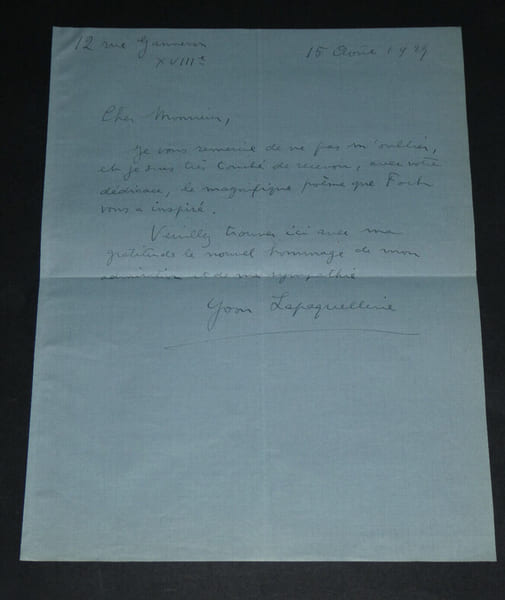 12 rue Ganneron
XVIIIe
15 Août 1929
Cher Monsieur,
Je vous remercie de ne pas m'oublier,
et je suis très comblé de recevoir, avec votre
dédicace, le magnifique poème que Foch
vous a inspiré.
Veuillez trouver ici avec ma
gratitude le nouvel hommage de mon
admiration et de ma sympathie
Yvon Lapaquellerie